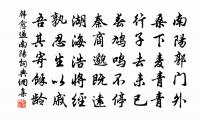 南陽郭門外
桑下麥青青
行子去未已
春鳩鳴不停
秦商邈既遠
湖海浩將經
孰忍生以慼
吾其寄餘齡
韓愈過南陽詞典網